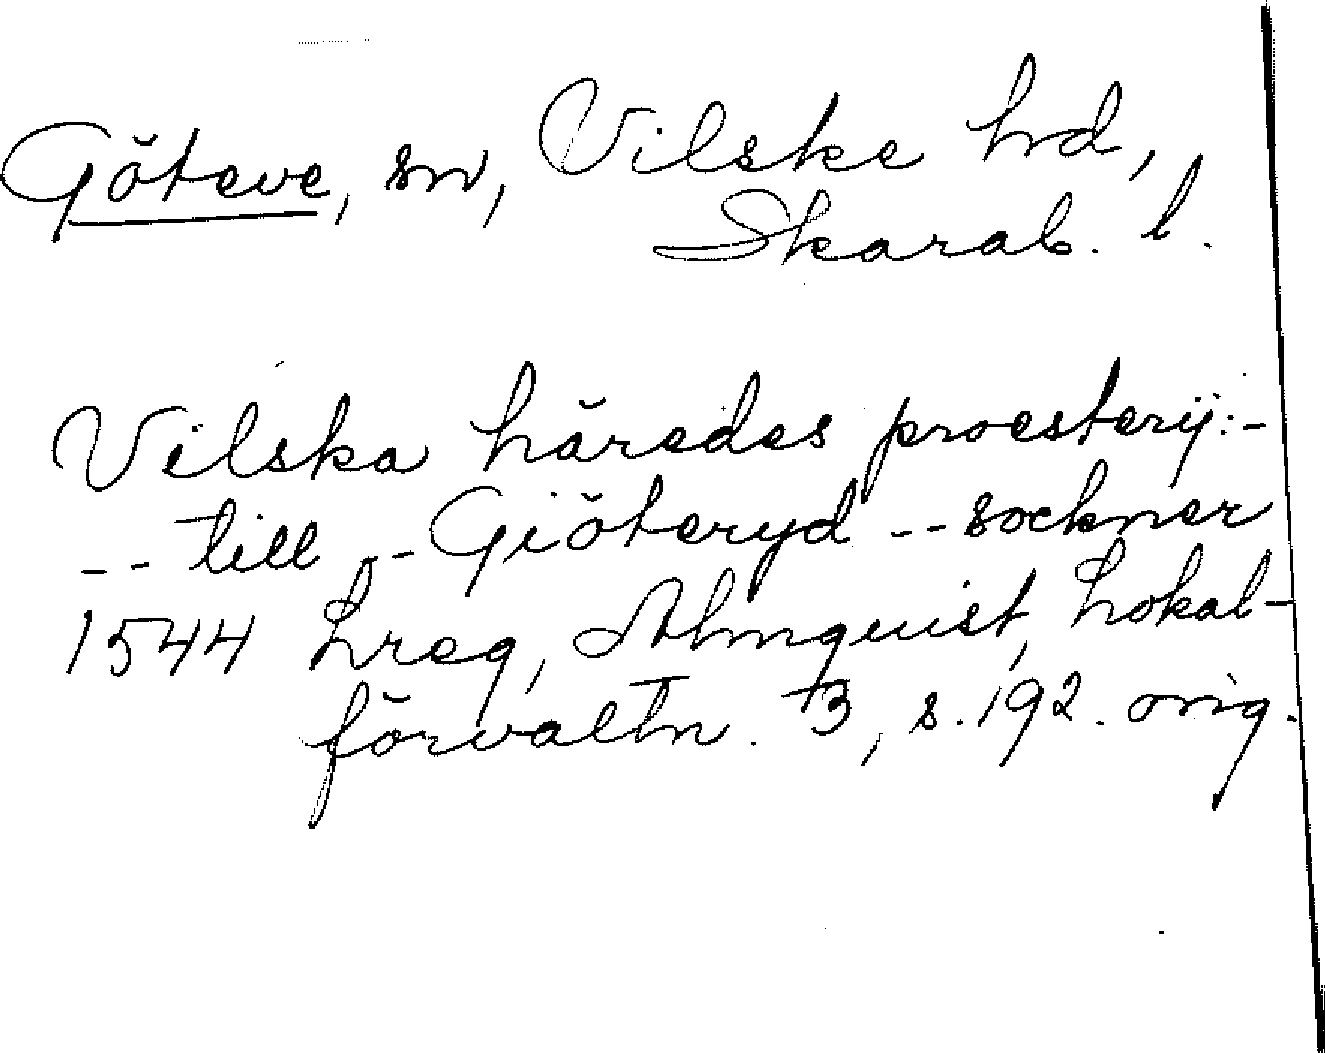 Göteve, sn, Vilske hrd,
Skarab. l.
Vilska häredes proestery:-
-- till -- Giöteryd -- sockner
1544 Lreg, Almquist, Lokal-
förvaltn. B, s. 192. orig.